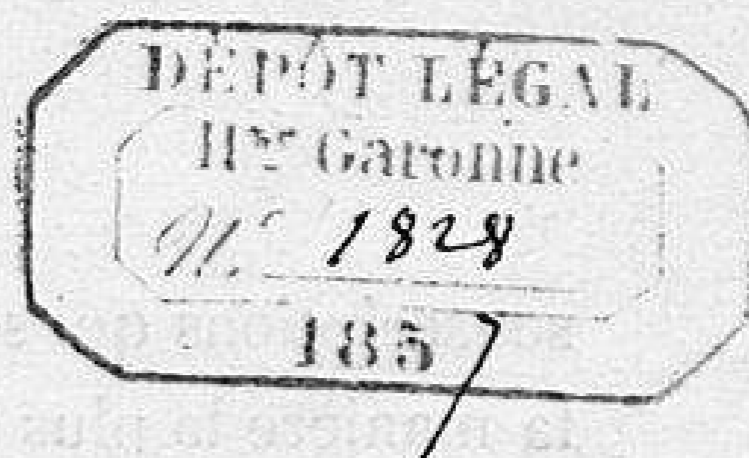 DÉPÔT LÉGAL
Hte Garonne
No 1828
1857